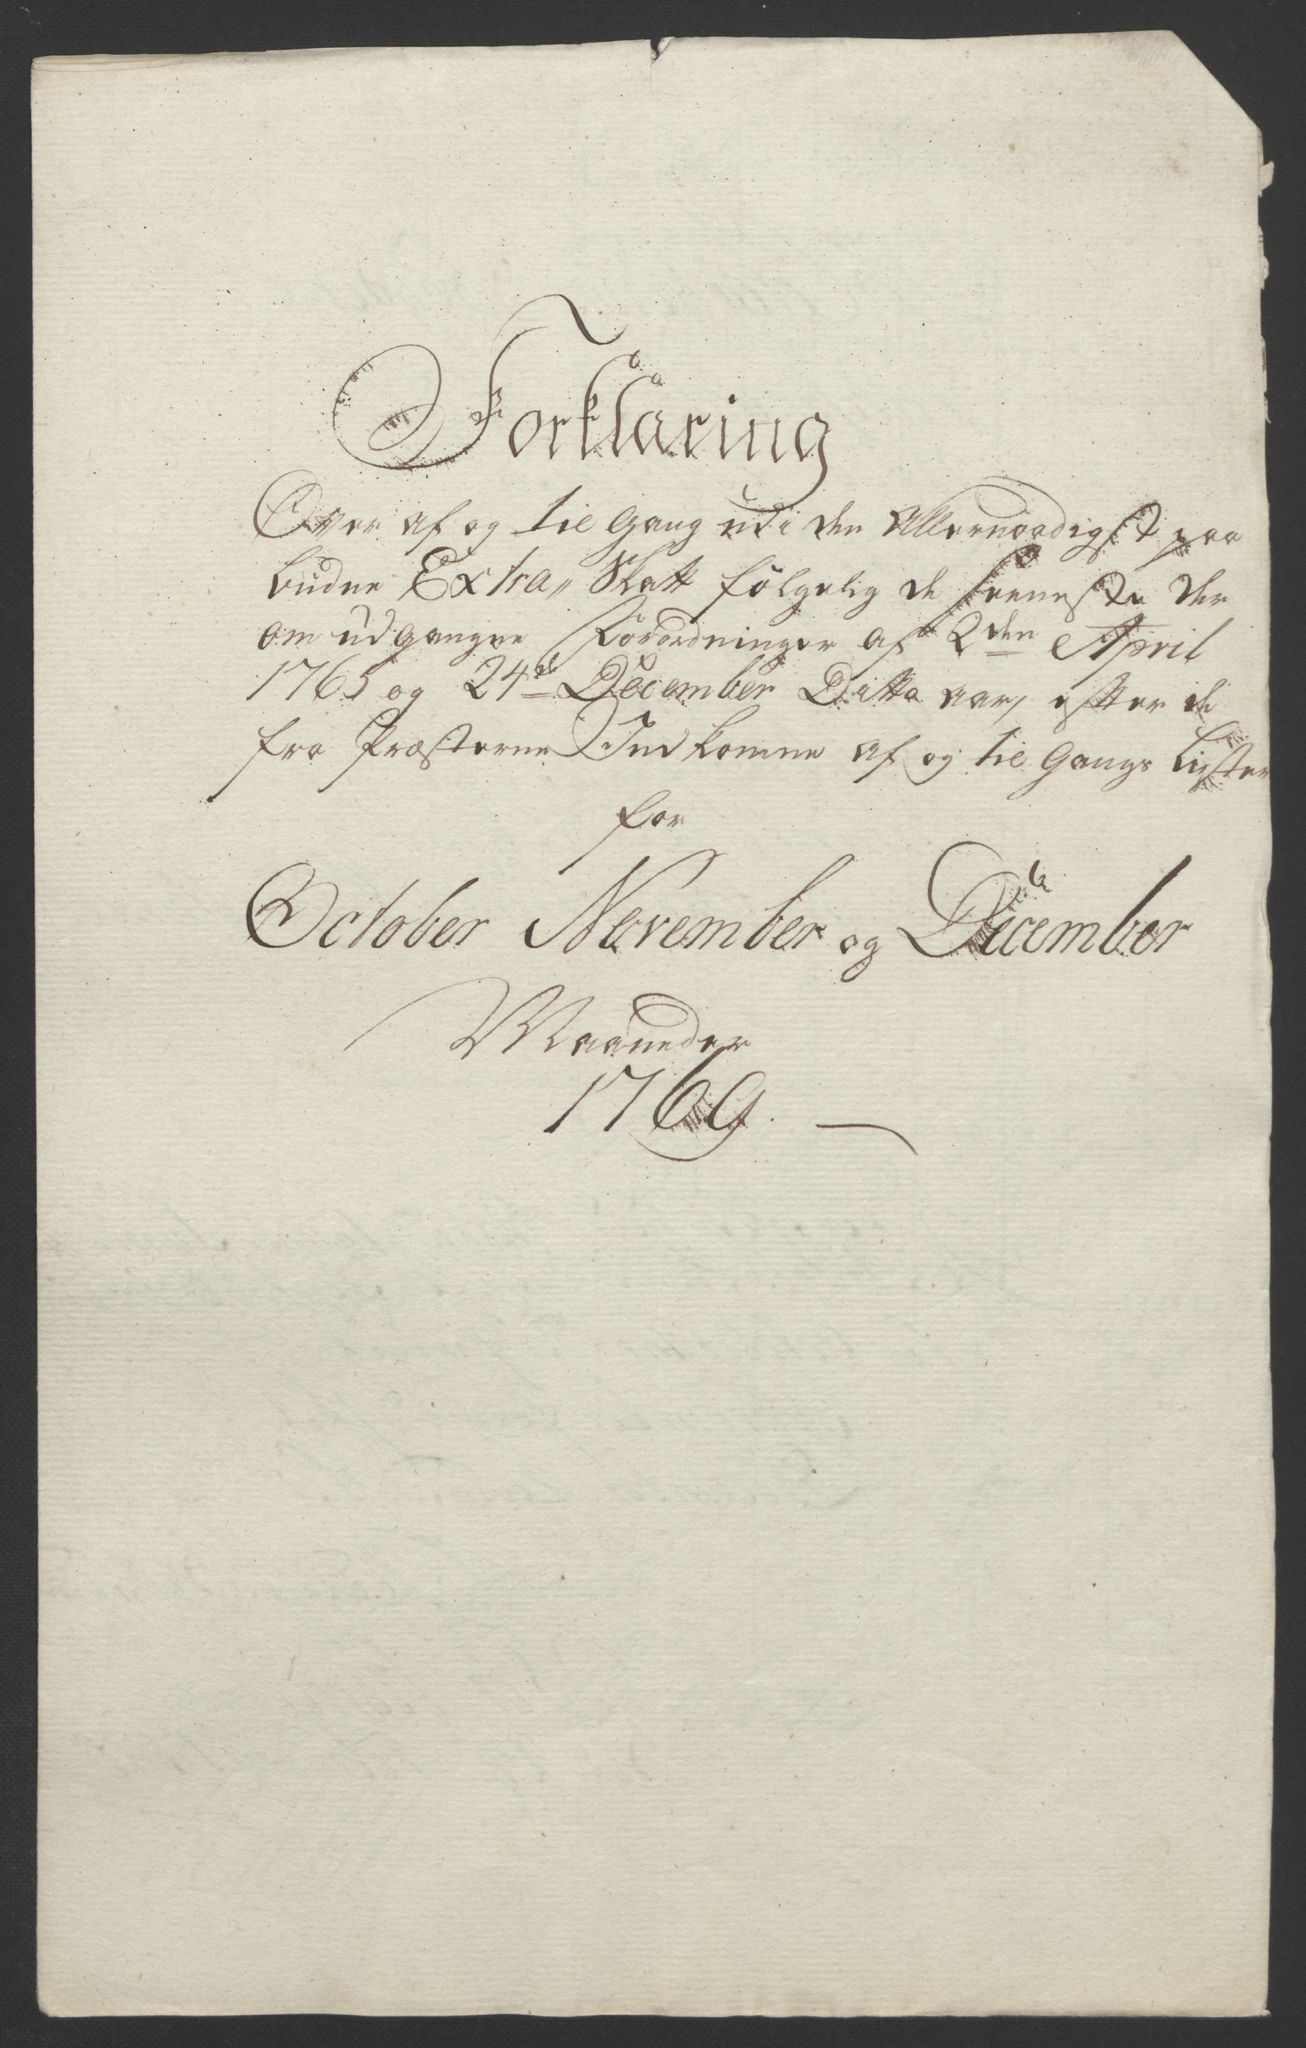 Forklaring
Over af og til gang udi den Allernaadigst paa
budne Extra,, Skatt følgelig de seeneste der
om udgangne Forordninger af 2den April
1765 og 24de December Ditto aar, efter de
fra Præsterne Indkomne af og til gangs lister
for
October November og December
Maaneder
1769